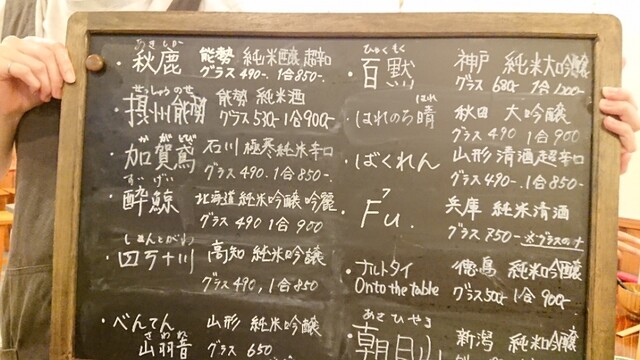 あきしか
秋鹿 能勢 純米醸 超辛
グラス 490- 1合 850-
せっしゅうのせ
摂州能勢 能勢 純米酒
グラス 530- 1合 900-
かがとび
加賀鳶 石川 極寒純米辛口
グラス 490-. 1合 850-.
すいげい
酔鯨 北海道 純米吟醸 吟麗
グラス 490 1合 900
しまんとがわ
四万十川 高知 純米吟醸
グラス 490, 1合 850
べんてん 山形 純米吟醸
さわね
山羽音 グラス 650
ひゃくもく
百黙 神戸 純米大吟醸
グラス 680-
はれ
はれのち晴 秋田 大吟醸
グラス 490 1合 900
ばくれん 山形 清酒 超辛口
グラス 490-. 1合 850-
フ
Fu. 兵庫 純米清酒
グラス 750-
ナルトタイ 徳島 純米吟醸
Onto the table グラス 500- 1合 900-
あさひやま
朝日山 新潟 純米吟醸